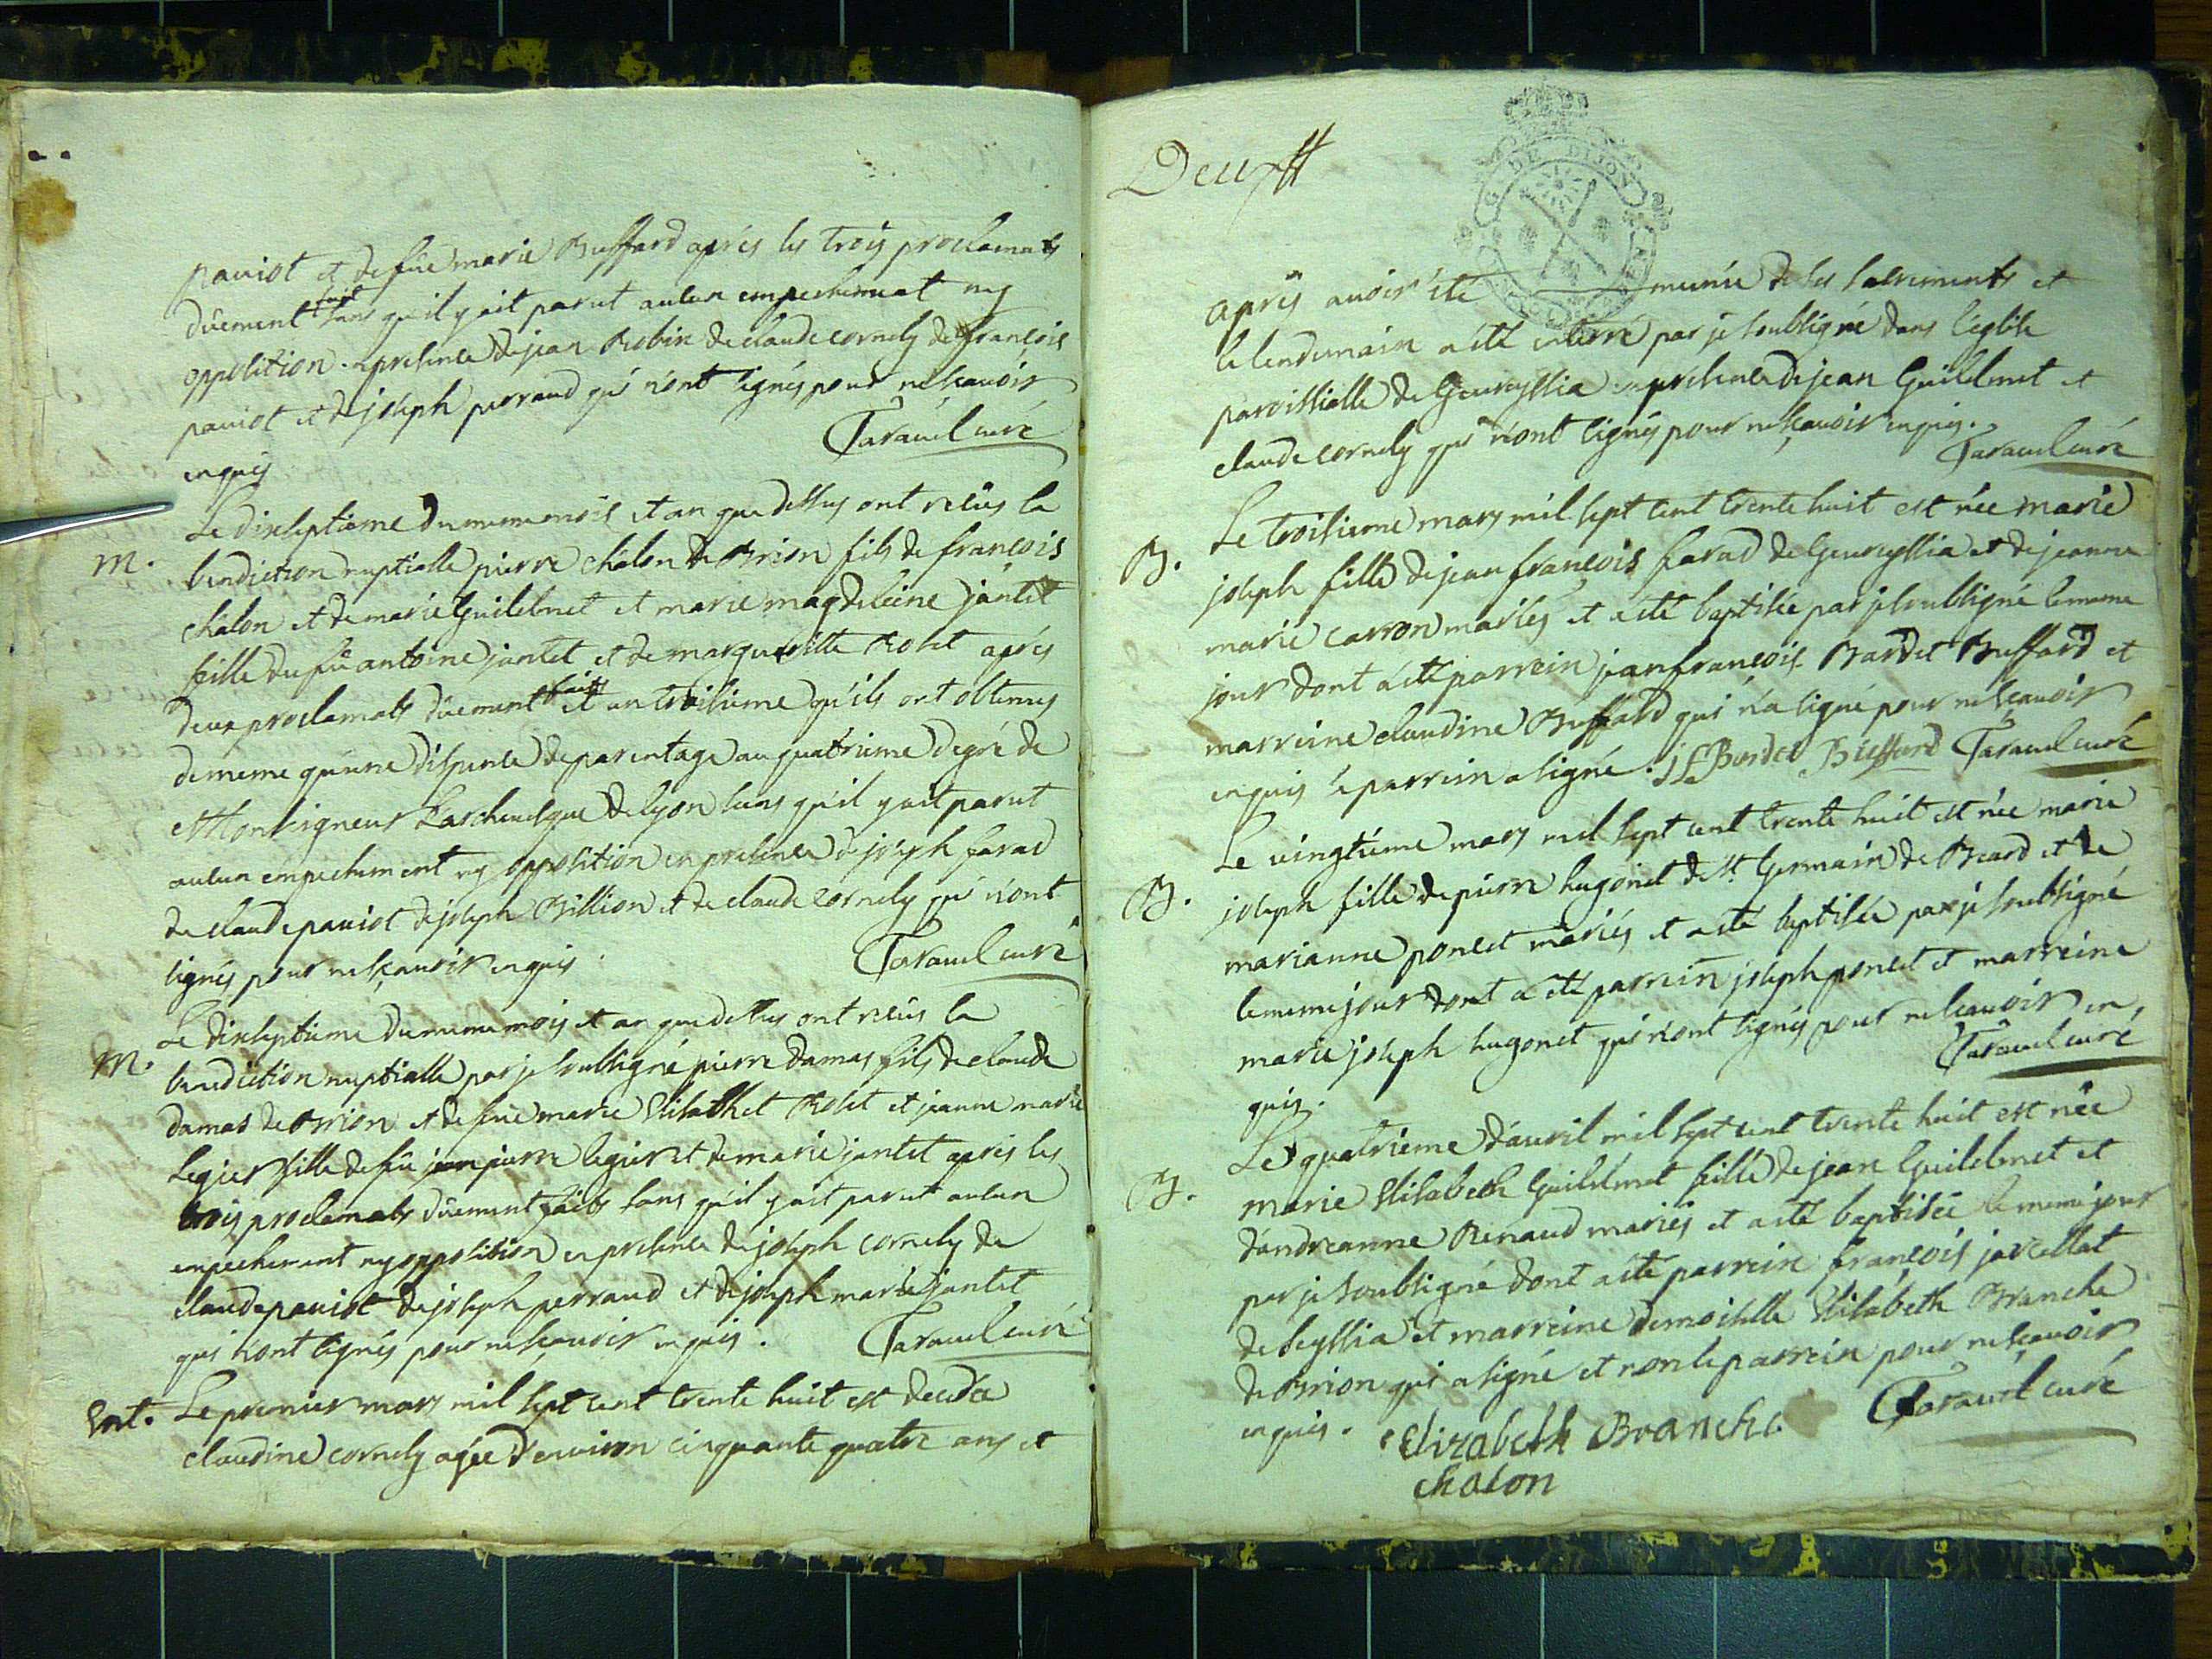 paviot et de füe marie Buffard aprés les trois proclamats
dûement fait sans qu'il y ait parut aucun empechement ny
opposition. en presence de jean Robin de claude cornely de françois
paviot et de joseph perraud qui n'ont signés pour ne sçavoir
enquis
Taravel curé
M. Le dixseptiéme du meme mois et an que dessus ont reçûs la
benediction nuptialle pierre chalon de Brion fils de françois
chalon et de marie Guilelmet et marie magdeleine jantet
fille du fû antoine jantet et de margueritte Rolet aprés
deux proclamats dûement faits et un troisiéme qu'ils ont obtenus
de meme qu'une dispense de parentage au quatriéme degré de
Monseigneur L'archevesque de lyon sans qu'il y ait parut
aucun empechement ny opposition en presence de joseph farad
de claude paviot de joseph Billion et de claude cornely qui n'ont
signés pour ne sçavoir enquis.
Taravel curé
M. Le dixseptiéme du meme mois et an que dessus ont reçûs la
benediction nuptialle par je soubsigné pierre damas fils de claude
damas de Brion et de füe marie Elisabhet Rolet et jeanne marie
Legier fille de fû jean pierre legier et de marie jantet aprés les
trois proclamats dûement faits sans qu'il y ait parut aucun
empechement ny opposition en presence de joseph cornely de
claude paviot de joseph perraud et de joseph marie jantet
qui n'ont signés pour ne sçavoir enquis.
Taravel curé
Ent. Le premier mars mil sept cent trente huit est decedée
claudine cornely agée d'environ cinquante quatre ans et
Deux
G DE DIJON
aprés avoir été munie de ses sacrements et
le lendemain a été enterré par je soubsigné dans l'eglise
paroissialle de Geneyssia en presence de jean Guilelmet et
claude cornely qui n'ont signés pour ne sçavoir enquis.
Taravel curé
B. Le troisiéme mars mil sept cent trente huit est née marie
joseph fille de jean françois farad de Geneyssia et de jeanne
marie carron mariés et a été baptisée par je soubsigné le meme
jour dont a été parrein jean françois Bardet Buffard et
marreine claudine Buffard qui n'a signé pour ne sçavoir
enquis le parrein a signé. j f Bardet Buffard Taravel curé
B. Le vingtiéme mars mil sept cent trente huit est née marie
joseph fille de pierre hugonet de St Germain de Beard et de
marianne poncet mariés et a été baptisée par je soubsigné
le meme jour dont a été parrein joseph poncet et marreine
marie joseph hugonet qui n'ont signés pour ne sçavoir en
quis.
Taravel curé
B. Le quatriéme d'avril mil sept cent trente huit est née
marie Elisabeth Guilelmet fille de jean Guilelmet et
d'andreanne Renaud mariés et a été baptisée le meme jour
par je soubsigné dont a été parrein françois javellat
de seyssia et marreine demoiselle Elisabeth Branche
de Brion qui a signé et non le parrein pour ne sçavoir
enquis.
Elizabeth Branche
chalon
Taravel curé